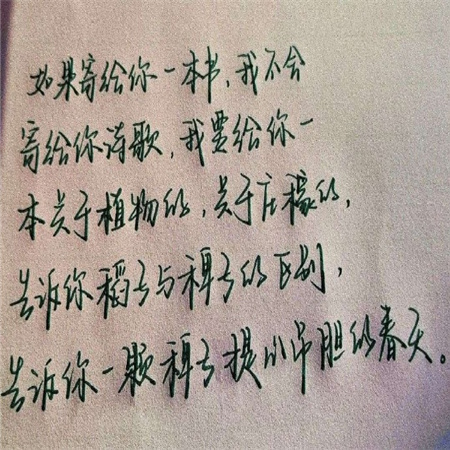 如果寄给你一本书,我不会
寄给你诗歌,我要给你一
本关于植物的,关于庄稼的,
告诉你稻子与稗子的区别,
告诉你一颗稗子提心吊胆的春天。